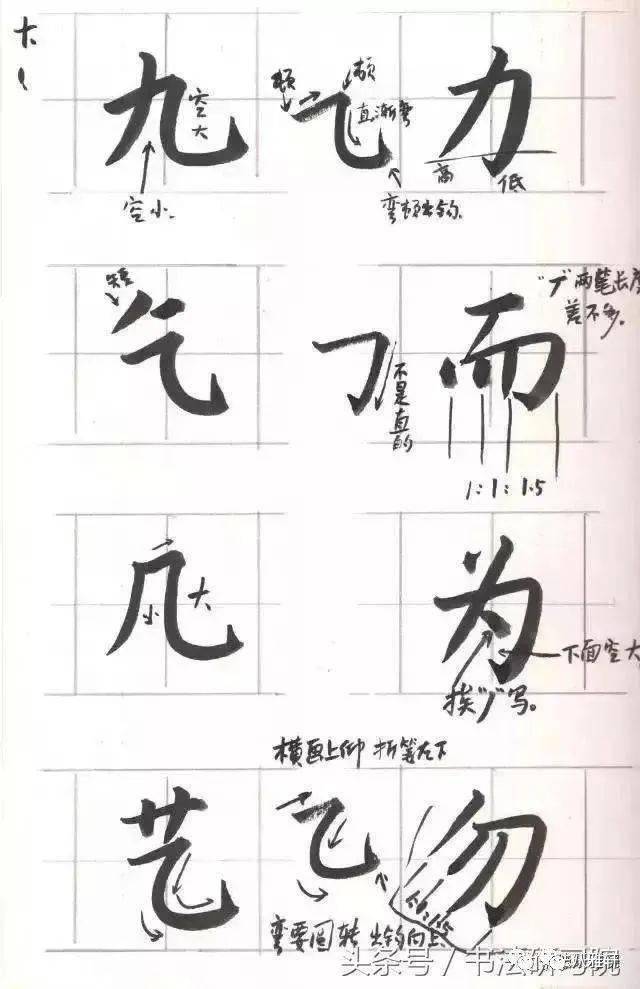 九 空大 顿 顿 乙 直渐弯 力
高 低
空小. 弯顿出钩.
短 "丆"两笔长度
差不多.
乞 ㇆ 不是直的 而
1:1:1.5
几 小 大 为
下面空大
挨"丿"写。
横画上仰 折笔左下
艺 乙 勿
弯要圆转 出钩向上
头条号／书法研习院